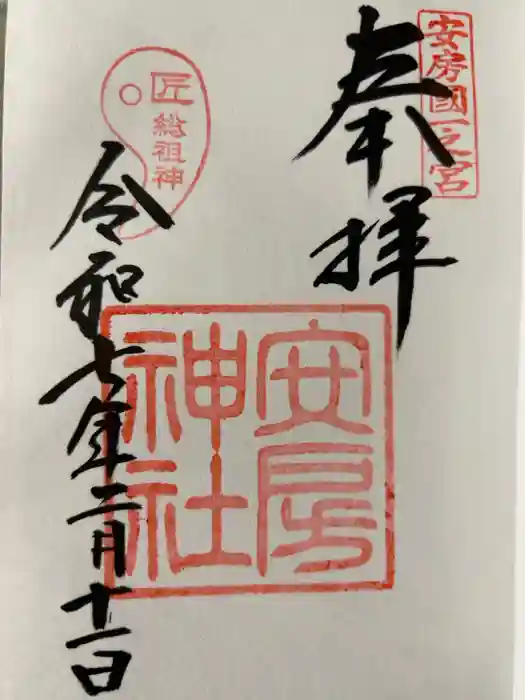 安房國一之宮
奉拝
安房
神社
匠
総祖神
令和七年二月十一日